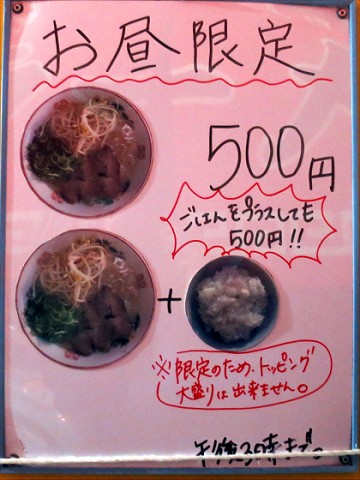 お昼限定
500円
ごはんをプラスしても
500円!!
+
※限定のため、トッピング
大盛りは出来ません。
午後3時まで。